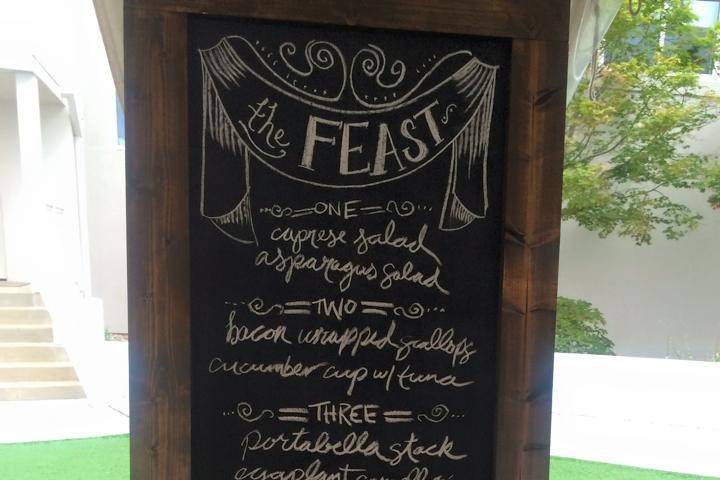 the FEAST
ONE
caprese salad
asparagus salad
TWO
bacon wrapped scallops
cucumber cup w/ tuna
THREE
portabella stack
eggplant